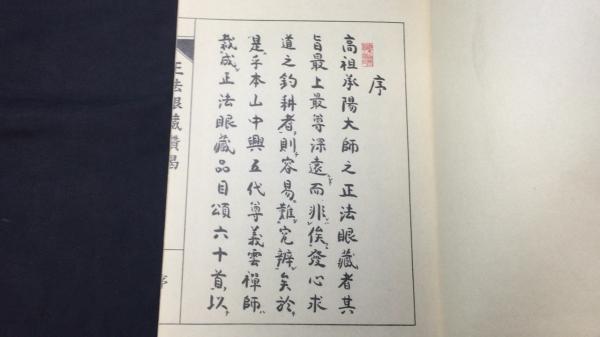 序
高祖承陽大師之正法眼藏者其
旨最上最尊深遠而非俟發心求
道之鈞耕者則容易難究辨矣於
是乎本山中興五代尊義雲禪師
裁成正法眼藏品目頌六十首以
正法眼藏讚偈
序